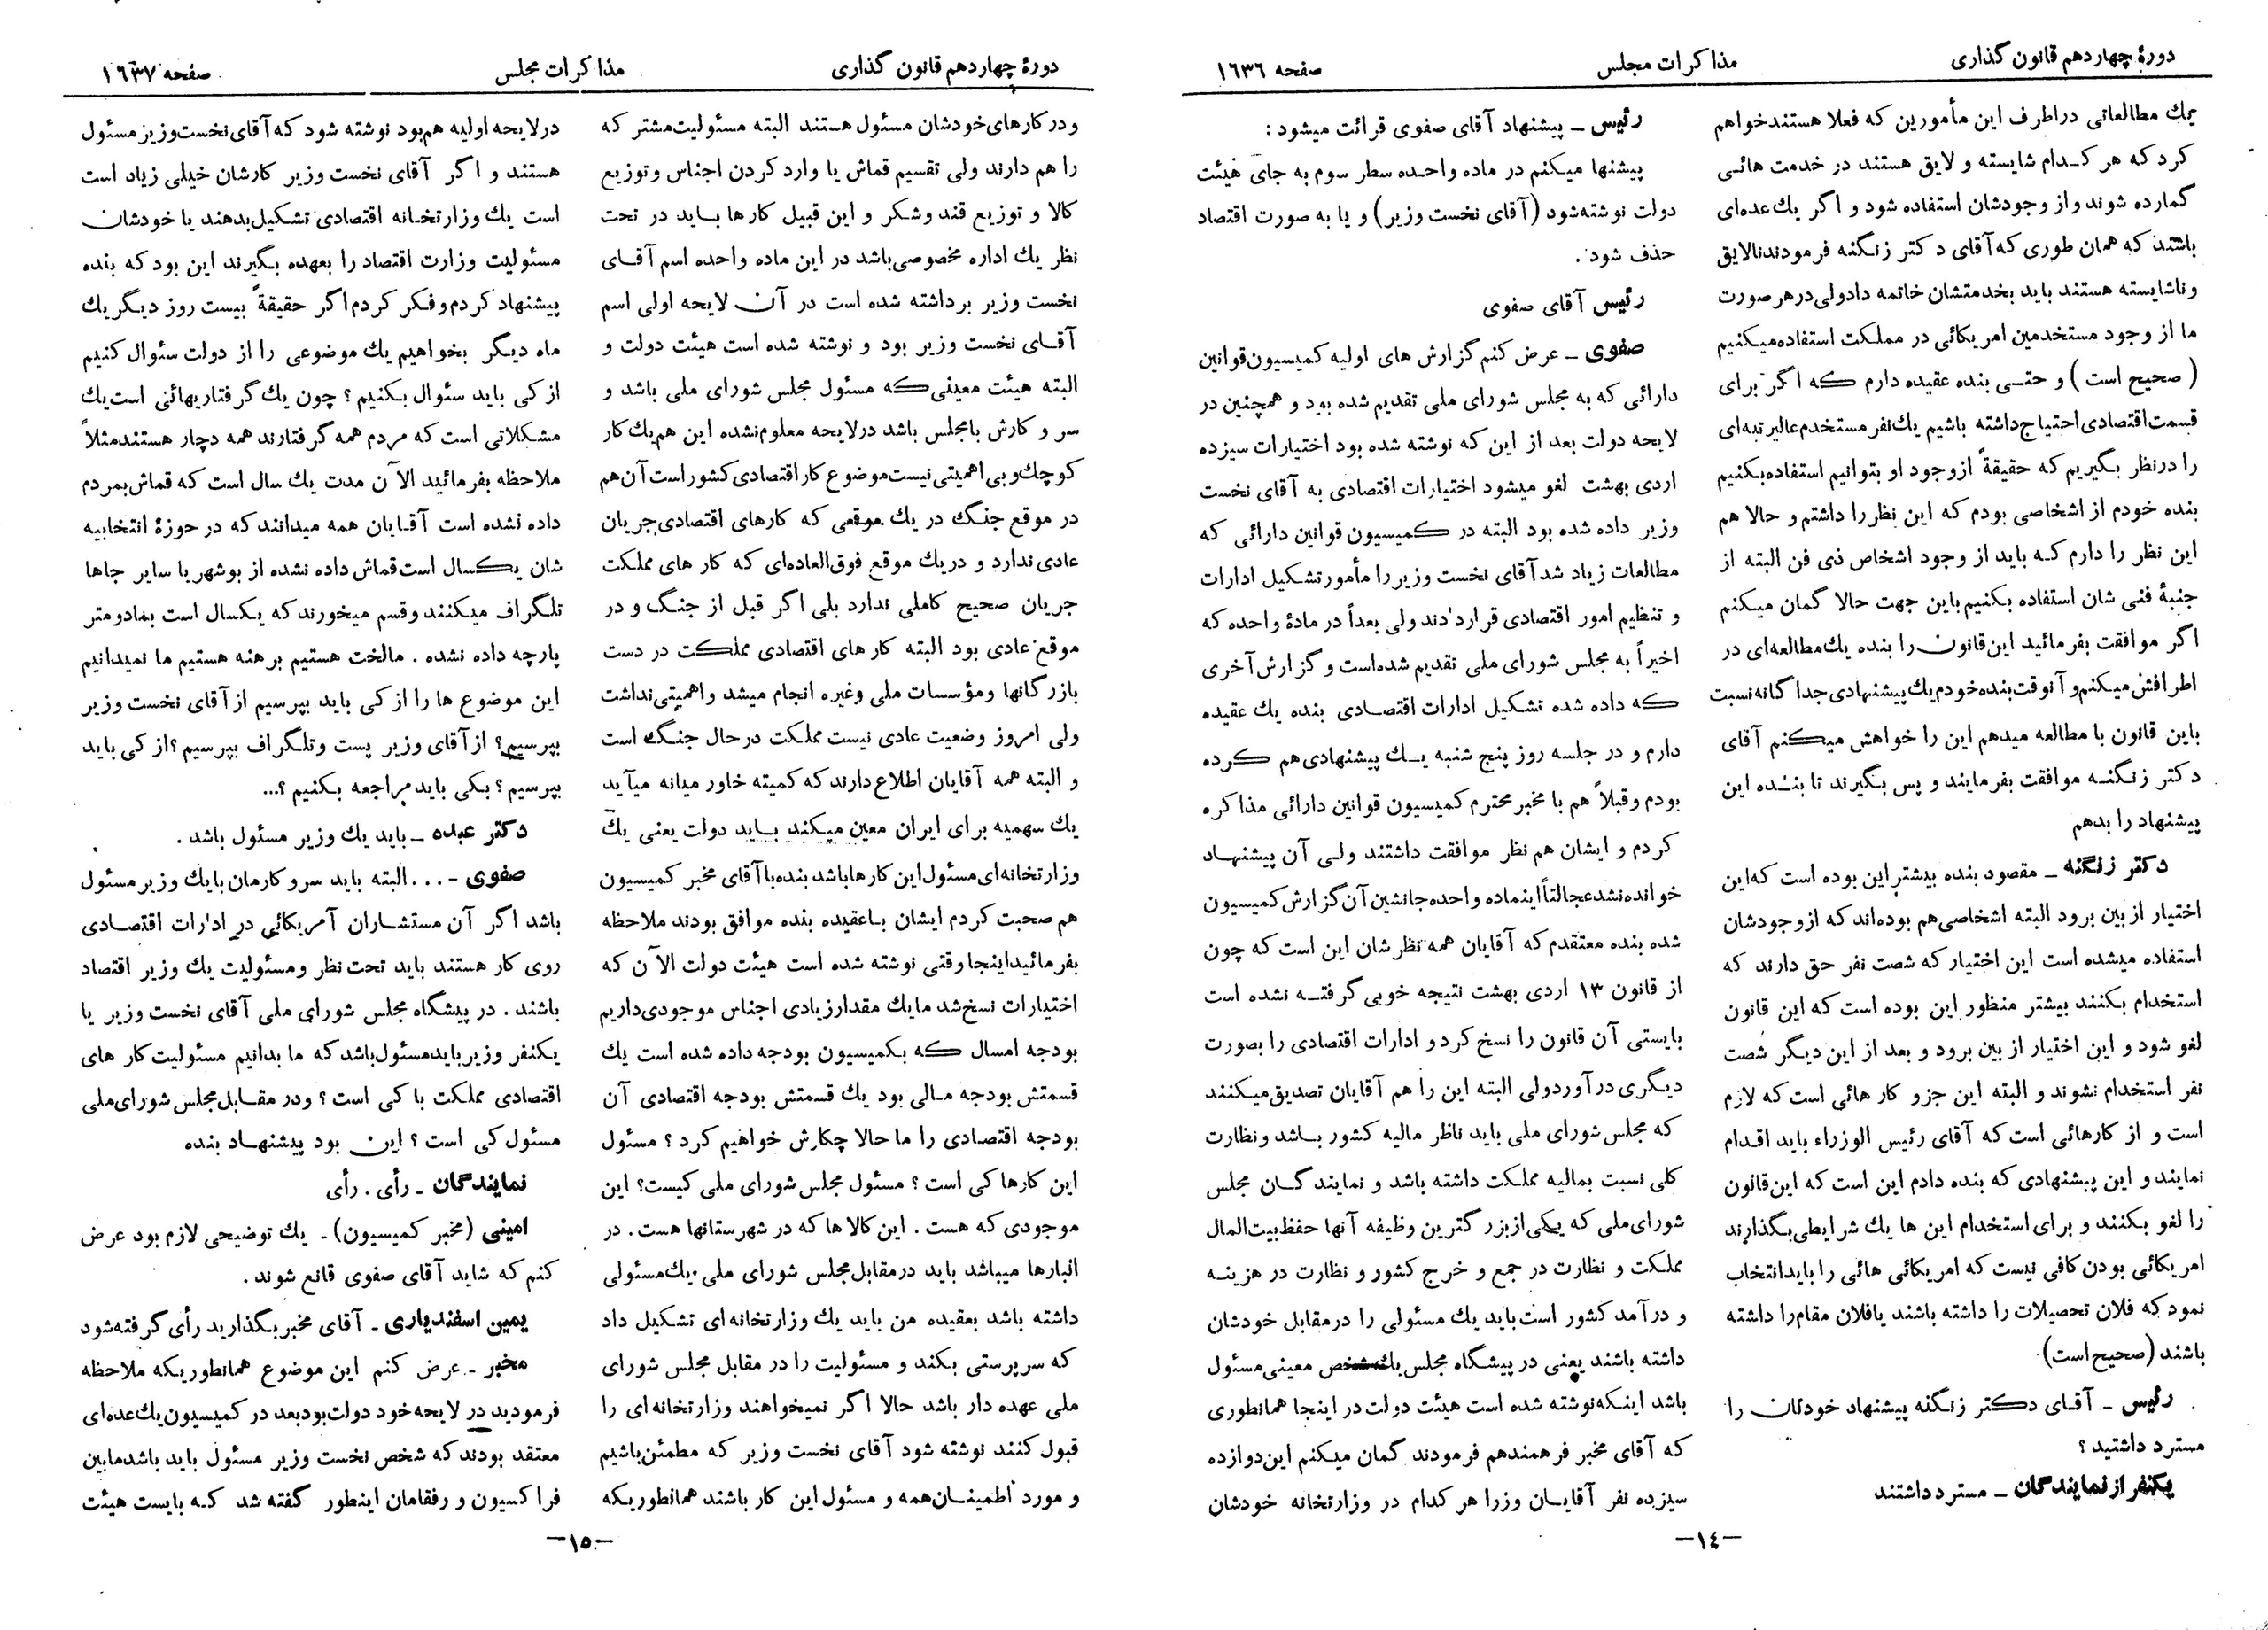 دورۀ چهاردهم قانون گذاری
مذاکرات مجلس
صفحه ١٦٣٦
یك مطالعاتی دراطراف این مأمورین که فعلا هستند خواهم
کرد که هر کدام شایسته و لایق هستند در خدمت هائی
گمارده شوند و از وجودشان استفاده شود و اگر یك عده‌ای
باشند که همان طوری که آقای دکتر زنگنه فرمودند نالایق
و ناشایسته هستند باید بخدمتشان خاتمه داد ولی در هر صورت
ما از وجود مستخدمین امریکائی در مملکت استفاده میکنیم
( صحیح است ) و حتی بنده عقیده دارم که اگر برای
قسمت اقتصادی احتیاج داشته باشیم یك نفر مستخدم عالیرتبه‌ای
را در نظر بگیریم که حقیقةً از وجود او بتوانیم استفاده بکنیم
بنده خودم از اشخاصی بودم که این نظر را داشتم و حالا هم
این نظر را دارم که باید از وجود اشخاص ذی فن البته از
جنبۀ فنی شان استفاده بکنیم باین جهت حالا گمان میکنم
اگر موافقت بفرمائید این قانون را بنده یك مطالعه‌ای در
اطرافش میکنم و آنوقت بنده خودم یك پیشنهادی جداگانه نسبت
باین قانون با مطالعه میدهم این را خواهش میکنم آقای
دکتر زنگنه موافقت بفرمایند و پس بگیرند تا بنده این
پیشنهاد را بدهم
دکتر زنگنه ـ مقصود بنده بیشتر این بوده است که این
اختیار از بین برود البته اشخاصی هم بوده‌اند که از وجودشان
استفاده میشده است این اختیار که شصت نفر حق دارند که
استخدام بکنند بیشتر منظور این بوده است که این قانون
لغو شود و این اختیار از بین برود و بعد از این دیگر شصت
نفر استخدام نشوند و البته این جزو کار هائی است که لازم
است و از کارهائی است که آقای رئیس الوزراء باید اقدام
نمایند و این پیشنهادی که بنده دادم این است که این قانون
را لغو بکنند و برای استخدام این ها یك شرایطی بگذارند
امریکائی بودن کافی نیست که امریکائی هائی را باید انتخاب
نمود که فلان تحصیلات را داشته باشند یا فلان مقام را داشته
باشند (صحیح است)
رئیس ـ آقای دکتر زنگنه پیشنهاد خودتان را
مسترد داشتید ؟
یکنفر از نمایندگان ـ مسترد داشتند
رئیس ـ پیشنهاد آقای صفوی قرائت میشود :
پیشنها میکنم در ماده واحده سطر سوم به جای هیئت
دولت نوشته شود (آقای نخست وزیر) و یا به صورت اقتصاد
حذف شود .
رئیس آقای صفوی
صفوی ـ عرض کنم گزارش های اولیه کمیسیون قوانین
دارائی که به مجلس شورای ملی تقدیم شده بود و همچنین در
لایحه دولت بعد از این که نوشته شده بود اختیارات سیزده
اردی بهشت لغو میشود اختیارات اقتصادی به آقای نخست
وزیر داده شده بود البته در کمیسیون قوانین دارائی که
مطالعات زیاد شد آقای نخست وزیر را مأمور تشکیل ادارات
و تنظیم امور اقتصادی قرار دادند ولی بعداً در مادۀ واحده که
اخیراً به مجلس شورای ملی تقدیم شده است و گزارش آخری
که داده شده تشکیل ادارات اقتصادی بنده یك عقیده
دارم و در جلسه روز پنج شنبه یك پیشنهادی هم کرده
بودم و قبلاً هم با مخبر محترم کمیسیون قوانین دارائی مذاکره
کردم و ایشان هم نظر موافقت داشتند ولی آن پیشنهاد
خوانده نشد عجالتاً اینماده واحده جانشین آن گزارش کمیسیون
شده بنده معتقدم که آقایان همه نظرشان این است که چون
از قانون ۱۳ اردی بهشت نتیجه خوبی گرفته نشده است
بایستی آن قانون را نسخ کرد و ادارات اقتصادی را بصورت
دیگری درآورد ولی البته این را هم آقایان تصدیق میکنند
که مجلس شورای ملی باید ناظر مالیه کشور باشد و نظارت
کلی نسبت بمالیه مملکت داشته باشد و نمایندگان مجلس
شورای ملی که یکی از بزرگترین وظیفه آنها حفظ بیت المال
مملکت و نظارت در جمع و خرج کشور و نظارت در هزینه
و درآمد کشور است باید یك مسئولی را در مقابل خودشان
داشته باشند یعنی در پیشگاه مجلس یك شخص معینی مسئول
باشد اینکه نوشته شده است هیئت دولت در اینجا همانطوری
که آقای مخبر فرهمندهم فرمودند گمان میکنم این دوازده
سیزده نفر آقایان وزرا هر کدام در وزارتخانه خودشان
-١٤-
دورۀ چهاردهم قانون گذاری
مذاکرات مجلس
صفحه ١٦٣٧
و در کارهای خودشان مسئول هستند البته مسئولیت مشترك
را هم دارند ولی تقسیم قماش یا وارد کردن اجناس و توزیع
کالا و توزیع قند و شکر و این قبیل کارها باید در تحت
نظر یك اداره مخصوصی باشد در این ماده واحده اسم آقای
نخست وزیر برداشته شده است در آن لایحه اولی اسم
آقای نخست وزیر بود و نوشته شده است هیئت دولت و
البته هیئت معینی که مسئول مجلس شورای ملی باشد و
سر و کارش بامجلس باشد درلایحه معلوم نشده این هم یك کار
کوچك و بی اهمیتی نیست موضوع کار اقتصادی کشور است آن هم
در موقع جنگ در یك موقعی که کارهای اقتصادی جریان
عادی ندارد و در یك موقع فوق العاده‌ای که کار های مملکت
جریان صحیح کاملی ندارد بلی اگر قبل از جنگ و در
موقع عادی بود البته کار های اقتصادی مملکت در دست
بازرگانها و مؤسسات ملی وغیره انجام میشد و اهمیتی نداشت
ولی امروز وضعیت عادی نیست مملکت در حال جنگ است
و البته همه آقایان اطلاع دارند که کمیته خاور میانه میآید
یك سهمیه برای ایران معین میکند باید دولت یعنی یك
وزارتخانه‌ای مسئول این کارها باشد بنده با آقای مخبر کمیسیون
هم صحبت کردم ایشان باعقیده بنده موافق بودند ملاحظه
بفرمائید اینجا وقتی نوشته شده است هیئت دولت الآن که
اختیارات نسخ شد ما یك مقدار زیادی اجناس موجودی داریم
بودجه امسال که بکمیسیون بودجه داده شده است یك
قسمتش بودجه مالی بود یك قسمتش بودجه اقتصادی آن
بودجه اقتصادی را ما حالا چکارش خواهیم کرد ؟ مسئول
این کارها کی است ؟ مسئول مجلس شورای ملی کیست؟ این
موجودی که هست . این کالا ها که در شهرستانها هست . در
انبارها میباشد باید درمقابل مجلس شورای ملی یك مسئولی
داشته باشد بعقیده من باید یك وزارتخانه‌ای تشکیل داد
که سرپرستی بکند و مسئولیت را در مقابل مجلس شورای
ملی عهده دار باشد حالا اگر نمیخواهند وزارتخانه‌ای را
قبول کنند نوشته شود آقای نخست وزیر که مطمئن باشیم
و مورد اطمینان همه و مسئول این کار باشند همانطوریکه
درلایحه اولیه هم بود نوشته شود که آقای نخست وزیر مسئول
هستند و اگر آقای نخست وزیر کارشان خیلی زیاد است
است یك وزارتخانه اقتصادی تشکیل بدهند یا خودشان
مسئولیت وزارت اقتصاد را بعهده بگیرند این بود که بنده
پیشنهاد کردم و فکر کردم اگر حقیقةً بیست روز دیگر یك
ماه دیگر بخواهیم یك موضوعی را از دولت سئوال کنیم
از کی باید سئوال بکنیم ؟ چون یك گرفتاریهائی است یك
مشکلاتی است که مردم همه گرفتارند همه دچار هستند مثلاً
ملاحظه بفرمائید الآن مدت یك سال است که قماش بمردم
داده نشده است آقایان همه میدانند که در حوزۀ انتخابیه
شان یکسال است قماش داده نشده از بوشهر یا سایر جاها
تلگراف میکنند و قسم میخورند که یکسال است بمادومتر
پارچه داده نشده . مالخت هستیم برهنه هستیم ما نمیدانیم
این موضوع ها را از کی باید بپرسیم از آقای نخست وزیر
بپرسیم؟ از آقای وزیر پست و تلگراف بپرسیم ؟ از کی باید
بپرسیم ؟ بکی باید مراجعه بکنیم ؟...
دکتر عبده ـ باید یك وزیر مسئول باشد .
صفوی - ... البته باید سرو کارمان بایك وزیر مسئول
باشد اگر آن مستشاران آمریکائی در ادارات اقتصادی
روی کار هستند باید تحت نظر و مسئولیت یك وزیر اقتصاد
باشند . در پیشگاه مجلس شورای ملی آقای نخست وزیر یا
یکنفر وزیر باید مسئول باشد که ما بدانیم مسئولیت کار های
اقتصادی مملکت با کی است ؟ و در مقابل مجلس شورای ملی
مسئول کی است ؟ این بود پیشنهاد بنده
نمایندگان ـ رأی . رأی
امینی (مخبر کمیسیون) ـ یك توضیحی لازم بود عرض
کنم که شاید آقای صفوی قانع شوند .
یمین اسفندیاری ـ آقای مخبر بگذارید رأی گرفته شود
مخبر ـ عرض کنم این موضوع همانطوریکه ملاحظه
فرمودید در لایحه خود دولت بود بعد در کمیسیون یك عده‌ای
معتقد بودند که شخص نخست وزیر مسئول باید باشد مابین
فراکسیون و رفقامان اینطور گفته شد که بایست هیئت
-١٥-